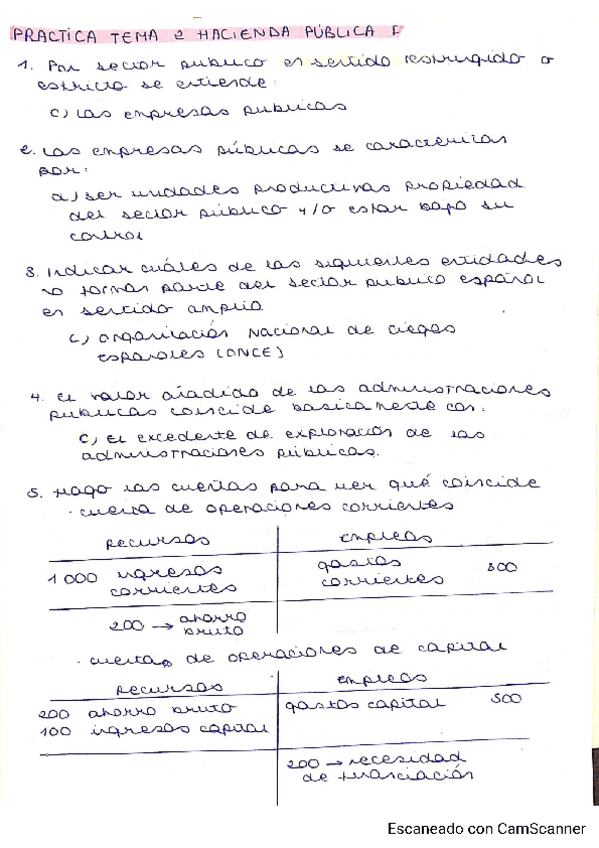 PRACTICA TEMA 2 HACIENDA PÚBLICA I
1. Por sector publico en sentido restringido o
estricto se entiende:
c) Las empresas publicas
2. Las empresas públicas se caracterizan
por:
a) ser unidades productivas propiedad
del sector público y/o estar bajo su
control
3. Indicar cuáles de las siguientes entidades
no forman parte del sector publico español
en sentido amplio
c) Organización Nacional de ciegos
españoles (ONCE)
4. El valor añadido de las administraciones
publicas coincide basicamente con:
c) El excedente de explotación de las
administraciones públicas.
5. Hago las cuentas para ver qué coincide
· cuenta de operaciones corrientes
recursos empleos
1000 ingresos corrientes gastos corrientes 800
200 → ahorro bruto
· cuenta de operaciones de capital
recursos empleos
200 ahorro bruto gastos capital 500
100 ingresos capital
200 → necesidad
de financiación
Escaneado con CamScanner